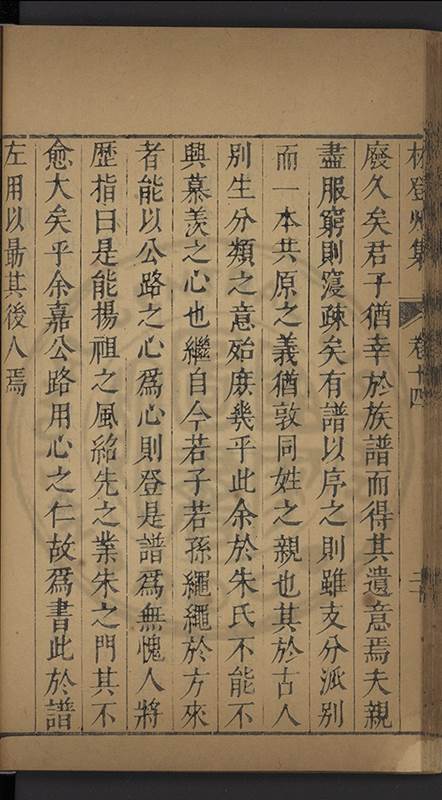 林登州集 卷十四 二十
廢久矣君子猶幸於族譜而得其遺意焉夫親
盡服窮則寖疎矣有譜以序之則雖支分派別
而一本共原之義猶敦同姓之親也其於古人
別生分類之意殆庶幾乎此余於朱氏不能不
興慕羨之心也繼自今若子若孫繩繩於方來
者能以公路之心爲心則登是譜爲無愧人將
歷指曰是能揚祖之風紹先之業朱之門其不
愈大矣乎余嘉公路用心之仁故爲書此於譜
左用以最其後人焉